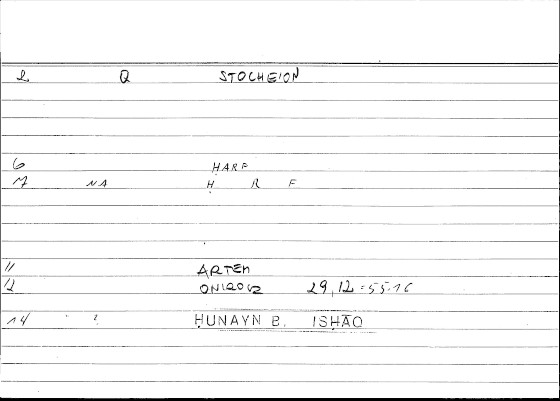 2 Q STOCHEION
6 HARF
7 NA Ḥ R F
11 ARTEM
12 ONIROCR 29,12 = 55.16
14 " ? ḤUNAYN B. ISḤĀQ